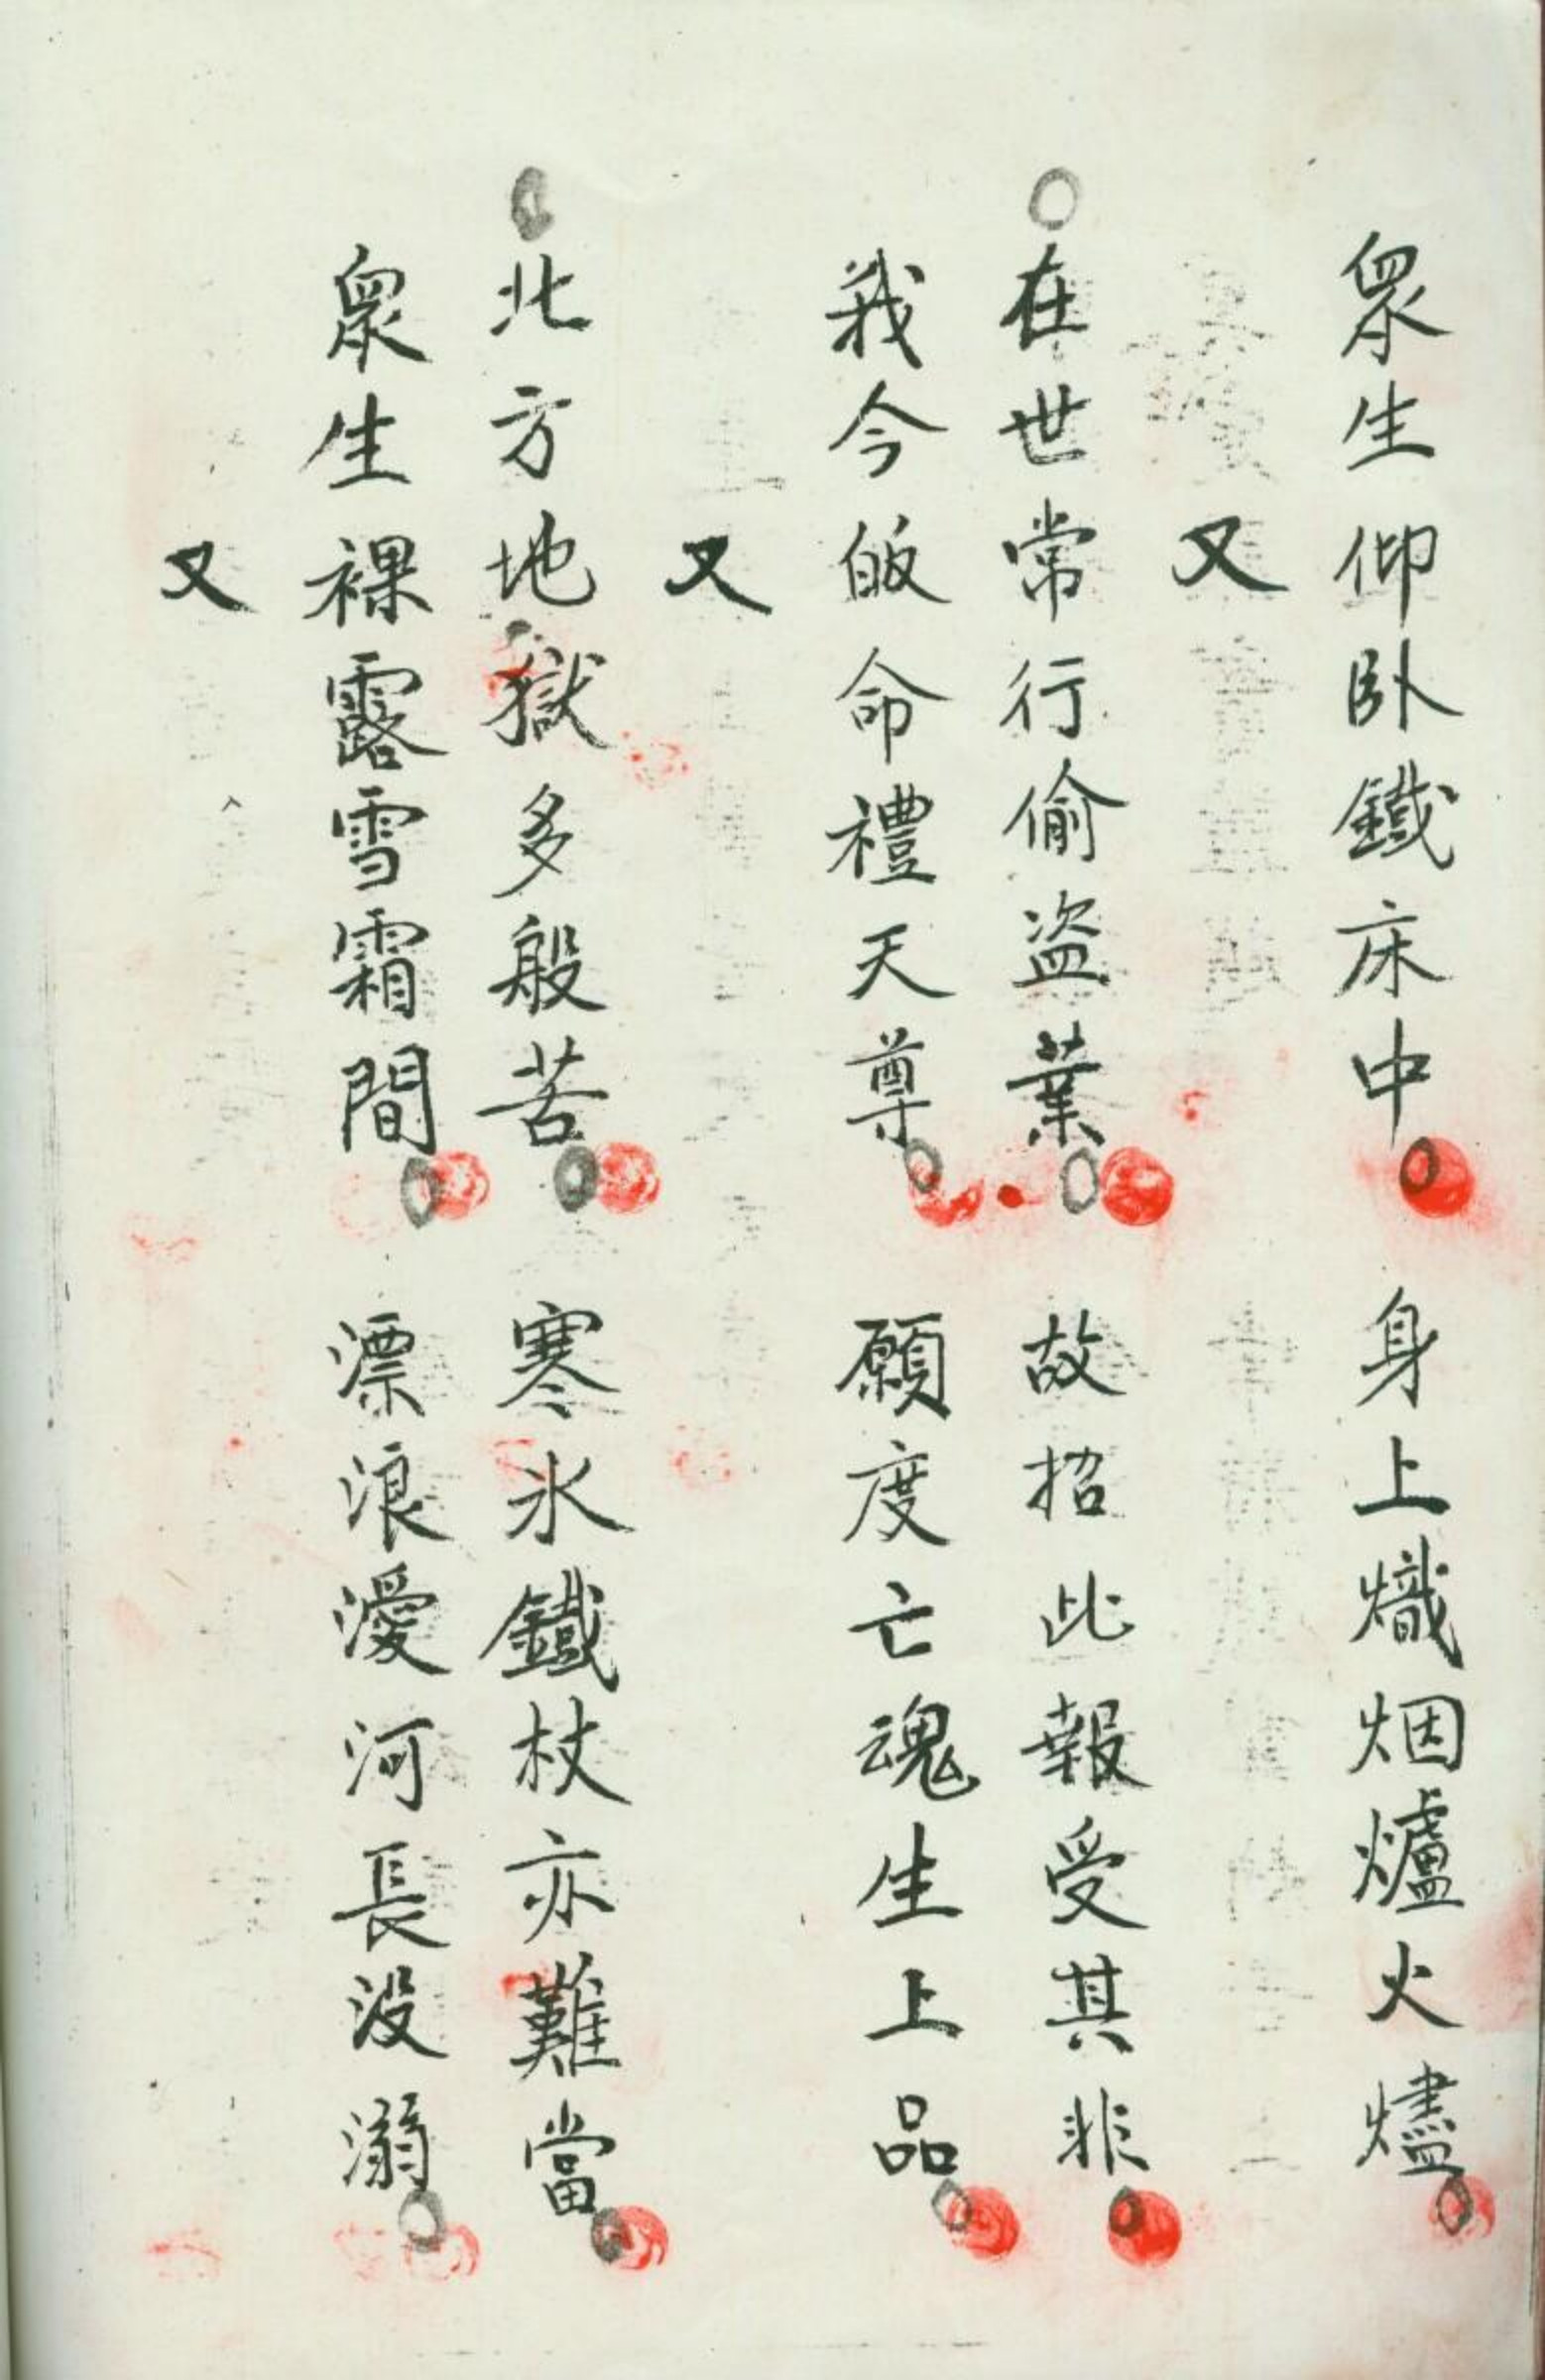 眾生仰卧鐵床中 身上熾烟爐火燼
又
在世常行偷盗業 故招此報受其非
我今皈命禮天尊 願度亡魂生上品
又
北方地獄多般苦 寒氷鐵杖亦難當
眾生裸露雪霜間 漂浪濅河長没溺
又